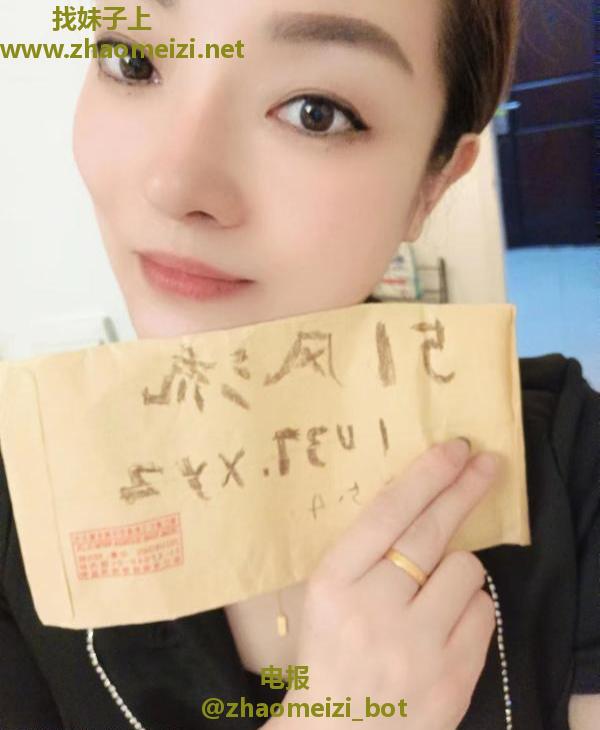 找妹子上
www.zhaomeizi.net
51风流
1u37.xyz
5.9
电报
@zhaomeizi_bot